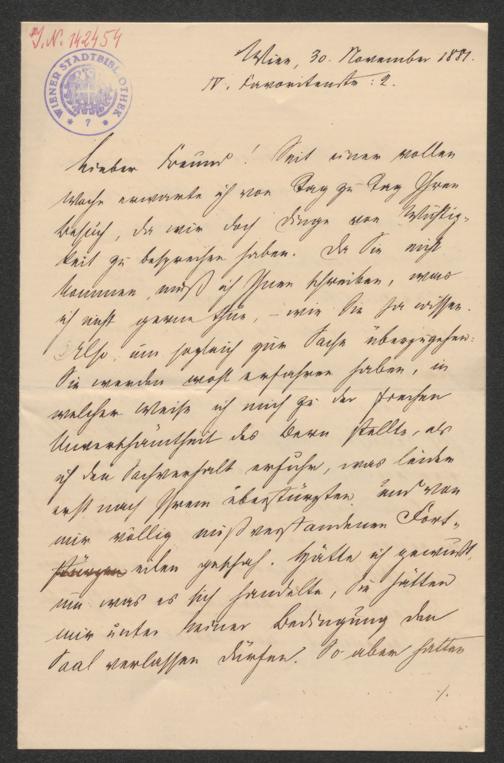 J.N. 142454
WIENER STADTBIBLIOTHEK
7
Wien, 30. November 1881.
IV. Favoritenstr: 2.
Lieber Freund! Seit einer vollen
Woche erwarte ich von Tag zu Tag Ihren
Besuch, da wir doch Dinge von Wichtig-
keit zu besprechen haben. Da Sie nicht
kommen, muß ich Ihnen schreiben, was
ich nicht gerne thue, – wie Sie ja wissen.
Also um sogleich zur Sache überzugehen:
Sie werden wohl erfahren haben, in
welcher Weise ich mich zu der frechen
Unverschämtheit des Bern stellte, als
ich den Sachverhalt erfuhr, was leider
erst nach Ihrem überstürzten und von
mir völlig mißverstandenen Fort-
eilen geschah. Hätte ich gewußt,
um was es sich handelte, Sie hätten
mir unter keiner Bedingung den
Saal verlassen dürfen. So aber hatten
./.